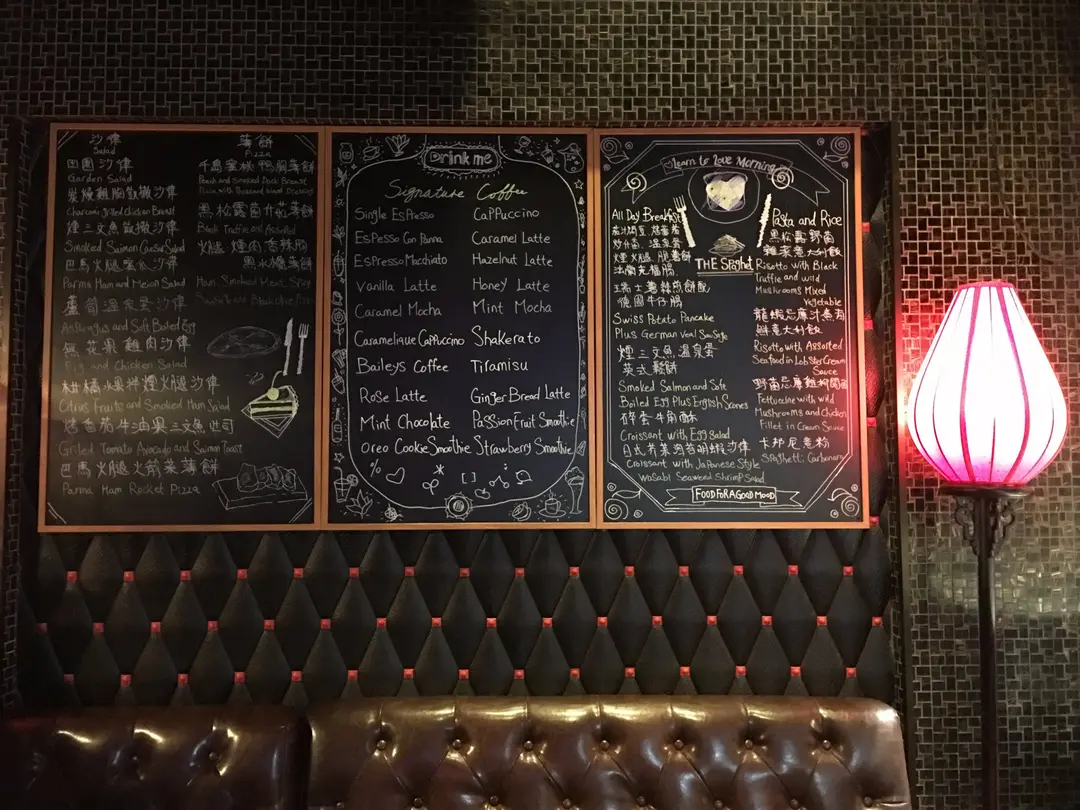 沙律
Salad
田園沙律
Garden Salad
炭燒雞胸凱撒沙律
Charcoal grilled Chicken Breast
煙三文魚凱撒沙律
Smoked Salmon Caesar Salad
巴馬火腿蜜瓜沙律
Parma Ham and Melon Salad
蘆筍溫泉蛋沙律
Asparagus and Soft Boiled Egg
無花果雞肉沙律
Fig and Chicken Salad
柑橘水果拌煙火腿沙律
Citrus Fruits and Smoked Ham Salad
烤番茄牛油果三文魚吐司
Grilled Tomato Avocado and Salmon Toast
巴馬火腿火箭菜薄餅
Parma Ham Rocket Pizza
薄餅
Pizza
千島蜜桃鴨胸薄餅
Peach and Smoked Duck Breast
Pizza with Thousand Island Dressing
黑松露菌什菇薄餅
Black Truffle and Assorted
火腿煙肉香辣腸
黑水欖薄餅
Ham Smoked Meat Spicy
Drink me
Signature Coffee
Single Espresso
Espresso Con Panna
Espresso Macchiato
Vanilla Latte
Caramel Mocha
Caramelique Cappuccino
Baileys Coffee
Rose Latte
Mint Chocolate
Oreo Cookie Smoothie
Cappuccino
Caramel Latte
Hazelnut Latte
Honey Latte
Mint Mocha
Shakerato
Tiramisu
Ginger Bread Latte
Passion Fruit Smoothie
Strawberry Smoothie
Learn to Love Morning
All Day Breakfast
茄汁焗豆, 焗蕃茄
炒什菌, 溫泉蛋
煙火腿, 脆薯餅
法蘭克福腸,
瑞士薯絲煎餅配
德國牛仔腸
Swiss Potato Pancake
Plus German Veal Sausage
煙三文魚溫泉蛋
英式鬆餅
Smoked Salmon and Soft
Boiled Egg Plus English Scones
碎蛋牛角酥
Croissant with Egg Salad
日式芥茉海苔胡蝦沙律
Croissant with Japanese Style
Wasabi Seaweed Shrimp Salad
THE Spaghet
Pasta and Rice
黑松露野菌
雜菜意大利飯
Risotto with Black
Truffle and wild
Mushrooms Mixed
Vegetable
龍蝦忌廉汁煮海
鮮意大利飯
Risotto with Assorted
Seafood in Lobster Cream
Sauce
野菌忌廉雞柳闊面
Fettucine with wild
Mushrooms and Chicken
Fillet in Cream Sauce
卡邦尼意粉
Spaghetti Carbonara
FOOD FOR A GOOD MOOD